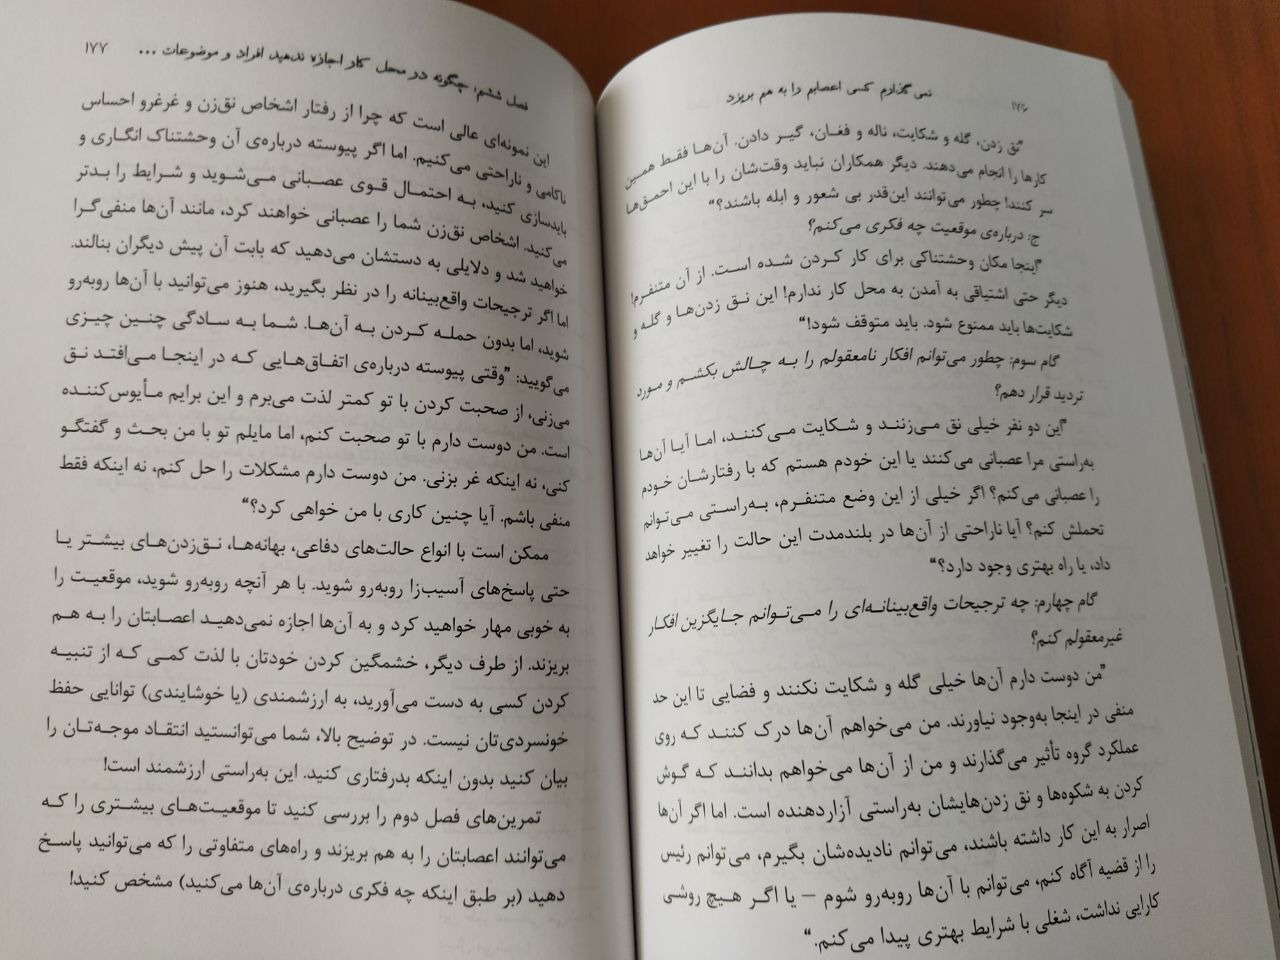 نمی‌گذارم کسی اعصابم را به هم بریزد
۱۷۶
"نق زدن، گله و شکایت، ناله و فغان، گیر دادن. آن‌ها فقط همین
کارها را انجام می‌دهند. دیگر همکاران نباید وقت‌شان را با این احمق‌ها
سر کنند! چطور می‌توانند این‌قدر بی شعور و ابله باشند؟"
ج: درباره‌ی موقعیت چه فکری می‌کنم؟
"اینجا مکان وحشتناکی برای کار کردن شده است. از آن متنفرم!
دیگر حتی اشتیاقی به آمدن به محل کار ندارم! این نق زدن‌ها و گله و
شکایت‌ها باید ممنوع شود. باید متوقف شود!"
گام سوم: چطور می‌توانم افکار نامعقولم را به چالش بکشم و مورد
تردید قرار دهم؟
"این دو نفر خیلی نق می‌زنند و شکایت می‌کنند، اما آیا آن‌ها
به‌راستی مرا عصبانی می‌کنند یا این خودم هستم که با رفتارشان خودم
را عصبانی می‌کنم؟ اگر خیلی از این وضع متنفرم، به‌راستی می‌توانم
تحملش کنم؟ آیا ناراحتی از آن‌ها در بلندمدت این حالت را تغییر خواهد
داد، یا راه بهتری وجود دارد؟"
گام چهارم: چه ترجیحات واقع‌بینانه‌ای را می‌توانم جایگزین افکار
غیرمعقولم کنم؟
"من دوست دارم آن‌ها خیلی گله و شکایت نکنند و فضایی تا این حد
منفی در اینجا به‌وجود نیاورند. من می‌خواهم آن‌ها درک کنند که روی
عملکرد گروه تأثیر می‌گذارند و من از آن‌ها می‌خواهم بدانند که گوش
کردن به شکوه‌ها و نق زدن‌هایشان به‌راستی آزاردهنده است. اما اگر آن‌ها
اصرار به این کار داشته باشند، می‌توانم نادیده‌شان بگیرم، می‌توانم رئیس
را از قضیه آگاه کنم، می‌توانم با آن‌ها روبه‌رو شوم – یا اگر هیچ روشی
کارایی نداشت، شغلی با شرایط بهتری پیدا می‌کنم."
فصل ششم: چگونه در محل کار اجازه ندهید افراد و موضوعات ...
۱۷۷
این نمونه‌ای عالی است که چرا از رفتار اشخاص نق‌زن و غرغرو احساس
ناکامی و ناراحتی می‌کنیم. اما اگر پیوسته درباره‌ی آن وحشتناک انگاری و
بایدسازی کنید، به احتمال قوی عصبانی می‌شوید و شرایط را بدتر
می‌کنید. اشخاص نق‌زن شما را عصبانی خواهند کرد، مانند آن‌ها منفی‌گرا
خواهید شد و دلایلی به دستشان می‌دهید که بابت آن پیش دیگران بنالند.
اما اگر ترجیحات واقع‌بینانه را در نظر بگیرید، هنوز می‌توانید با آن‌ها روبه‌رو
شوید، اما بدون حمله کردن به آن‌ها. شما به سادگی چنین چیزی
می‌گویید: "وقتی پیوسته درباره‌ی اتفاق‌هایی که در اینجا می‌افتد نق
می‌زنی، از صحبت کردن با تو کمتر لذت می‌برم و این برایم مأیوس‌کننده
است. من دوست دارم با تو صحبت کنم، اما مایلم تو با من بحث و گفتگو
کنی، نه اینکه غر بزنی. من دوست دارم مشکلات را حل کنم، نه اینکه فقط
منفی باشم. آیا چنین کاری با من خواهی کرد؟"
ممکن است با انواع حالت‌های دفاعی، بهانه‌ها، نق‌زدن‌های بیشتر یا
حتی پاسخ‌های آسیب‌زا روبه‌رو شوید. با هر آنچه روبه‌رو شوید، موقعیت را
به خوبی مهار خواهید کرد و به آن‌ها اجازه نمی‌دهید اعصابتان را به هم
بریزند. از طرف دیگر، خشمگین کردن خودتان با لذت کمی که از تنبیه
کردن کسی به دست می‌آورید، به ارزشمندی (یا خوشایندی) توانایی حفظ
خونسردی‌تان نیست. در توضیح بالا، شما می‌توانستید انتقاد موجه‌تان را
بیان کنید بدون اینکه بدرفتاری کنید. این به‌راستی ارزشمند است!
تمرین‌های فصل دوم را بررسی کنید تا موقعیت‌های بیشتری را که
می‌توانند اعصابتان را به هم بریزند و راه‌های متفاوتی را که می‌توانید پاسخ
دهید (بر طبق اینکه چه فکری درباره‌ی آن‌ها می‌کنید) مشخص کنید!